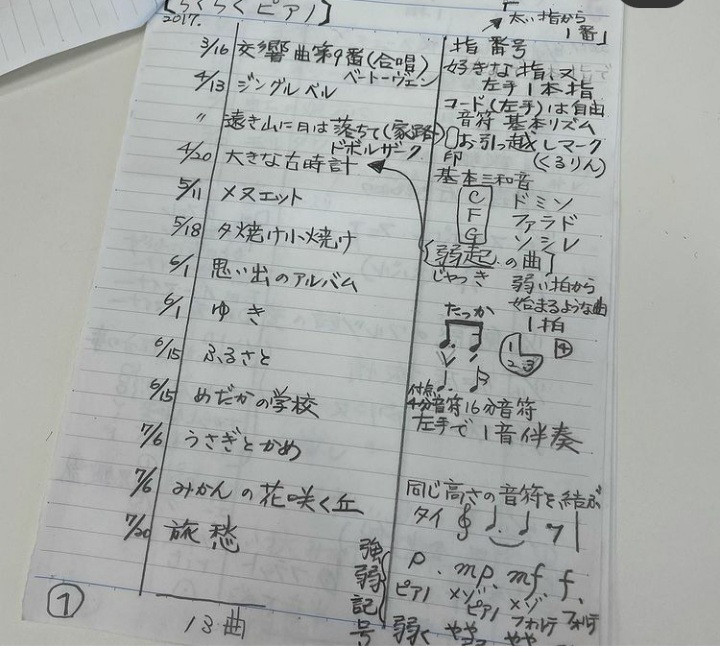 【らくらくピアノ】
2017.
3/16 交響曲第9番(合唱)
ベートーヴェン
4/13 ジングルベル
〃 遠き山に日は落ちて(家路)
ドボルザーク
4/20 大きな古時計
5/11 メヌエット
5/18 夕焼け小焼け
6/1 思い出のアルバム
6/1 ゆき
6/15 ふるさと
6/15 めだかの学校
7/6 うさぎとかめ
7/6 みかんの花咲く丘
7/20 旅愁
13曲
①
太い指から
1番」
指番号
好きな指
左手1本指
コード(左手)は自由
音符 基本リズム
お引っ越しマーク
印 (くるりん)
基本三和音
C ドミソ
F ファラド
G ソシレ
【弱起の曲】
じゃっき 弱い拍から
始まるような曲
1拍
たっか
1 2 3 4
付点
4分音符 16分音符
左手で1音伴奏
同じ高さの音符を結ぶ
タイ
強弱記号
p. mp. mf. f.
ピアノ メゾピアノ メゾフォルテ フォルテ
弱く やや やや